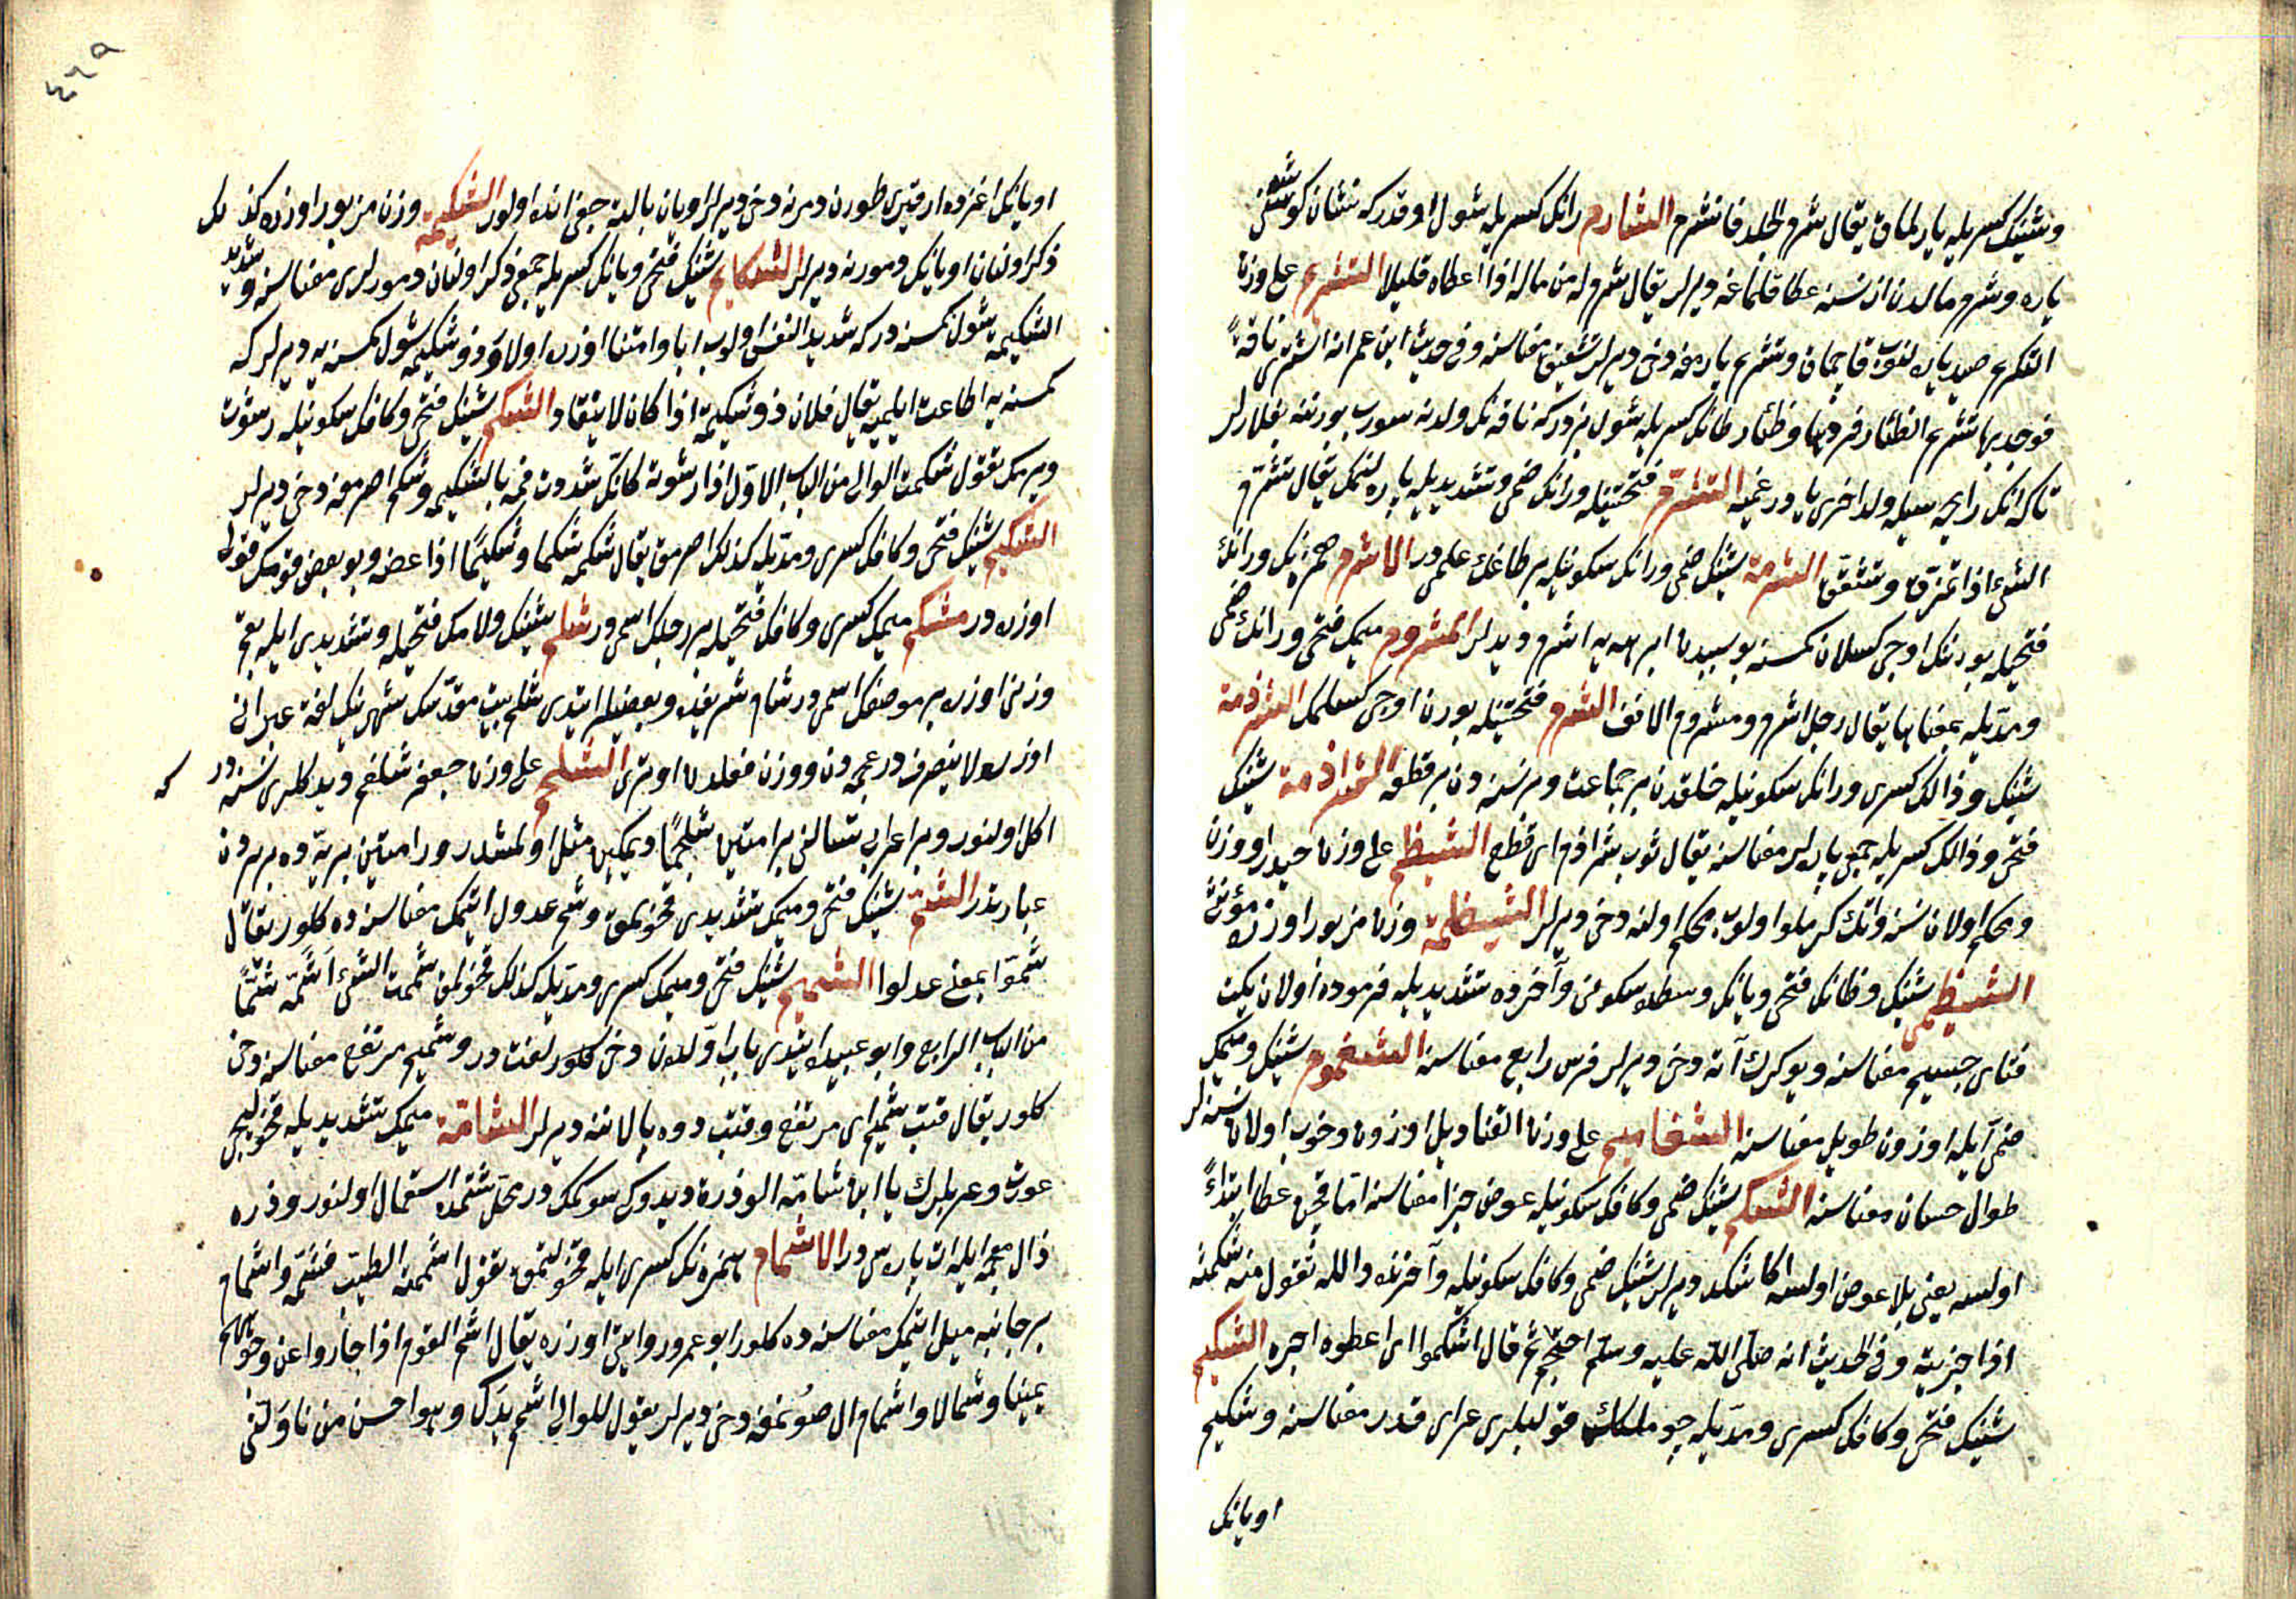 وشینك كسریله یارلماق یقال شرم الجلد فانشرم الشارم رانك كسریله شول اوقدر كه نشان كوشه سنی
یاره وشرم مالدن از نسنه عطا قلماغه دیرلر یقال شرم له من ماله اذا اعطاه قلیلا التشریم علی وزن
التكریم صید یاره لنوب قاچماق وتشریم یارمغه دخی دیرلر تشقیق معناسنه وفی حدیث ابن عمر انه اشتری ناقةً
فوجد بها تشریم الظئار فردها وظئار ظانك كسریله شول بزدر كه ناقه نك ولدنه سورب بورننه بغلارلر
تاكه انك رایحه سیله ولد اخری یاوریغینه التشرّم فتحتینله ورانك ضمی وتشدیدیله یاره لنمك یقال تشرّم
الشئ اذا تمزق وتشقق الشرمة شینك ضمی ورانك سكونیله بر طاغك علمی در الاشرم همزه نك ورانك
فتحیله بورننك اوجی كسلان كمسنه بو سببدن ابرهه یه اشرم دیدلر المشروم میمك فتحی ورانك ضمی
ومدّیله بمعناها یقال رجل اشرم ومشروم الانف الشرم فتحتینله بورن اوجی كسلمك الشرذمة
شینك وذالك كسری ورانك سكونیله خلقدن بر جماعت وبر نسنه دن بر قطعه الشراذمة شینك
فتحی وذالك كسریله جمعی پاره لر معناسنه یقال ثوب شراذم ای قطع الشیظم علی وزن حیدر اوزون
ومحكم اولان نسنه وانك كركلو اولوب محكم اولنه دخی دیرلر الشیظمة وزن مزبور اوزره مؤنثی
الشیظمی شینك وظانك فتحی ویانك وسطده سكونی وآخرده تشدیدیله فرموده اولان یكیت
فتای جسیم معناسنه ویوكرك آته دخی دیرلر فرس رابع معناسنه الشغموم شینك ومیمك
ضمی ایله اوزون طویل معناسنه الشغامیم علی وزن القنادیل اوزون وخوب اولان نسنه لر
طوال حسان معناسنه الشكم شینك ضمی وكافك سكونیله عوض جزا معناسنه امّا قچن عطا ابتداءً
اولسه یعنی بلا عوض اولسه اكا شكد دیرلر شینك ضمی وكافك سكونیله وآخرنده دال له تقول منه شكمته
اذا جزیته وفی الحدیث انه صلی الله علیه وسلم احتجم ثم قال اشكموا ای اعطوه اجره الشكیم
شینك فتحی وكافك كسری ومدّیله چوملك قولبلری عرای قدر معناسنه وشكیم
اویانك
٤٦٥
اویانك اغزده ارقری طورن دمرنه دخی دیرلر اویان بالیة جمعی انده اولور الشكیمة وزن مزبور اوزره كذلك
ذكر اولنان اویانك دمورنه دیرلر الشكایم شینك فتحی ویانك كسریله جمعی ذكر اولنان دمورلری معناسنه وشدید
الشكیمة شول كمسنه در كه شدید النفس اولوب ابا وامتناع اوزره اولا وذو شكیمه شول كمسنه یه دیرلر كه
كمسنه یه اطاعت ایلمیه یقال فلان ذو شكیمة اذا كان لا ینقاد الشكم شینك فتحی وكافك سكونیله رشوت
ویرمك تقول شكمت الوالی من الباب الاول اذا رشوته كانّك شددت فمه بالشكیمه وشكم اصرمغه دخی دیرلر
الشكیم شینك فتحی وكافك كسری ومدّیله كذلك اصرمق یقال شكمه شكما وشكیمًا اذا عضه وبو بعض قومك قولی
اوزره در مشكم میمك كسری وكافك فتحیله بر رجلك اسمی در شلم شینك ولامك فتحیله وتشدیدی ایله بقم
وزنی اوزره بر موضعك اسمی در شام شریفده وبعضیلر ایتدی شلم بیت مقدسك شهرینك لغة عبرانی
اوزره ولا ینصرف در عجمه دن ووزن فعلدن اوتری الشلجم علی وزن جعفر شلغم دیدكلری نسنه در كه
اكل اولنور وبر اعرابی تسالنی برامتین شلجمًا دیمكین مثل اولمشدر ورامتین بریّه ده بر یردن
عبارتدر الشمّ شینك فتحی ومیمك تشدیدی قوخولمق وشم عدول ایتمك معناسنه ده كلور یقال
شمّوا بمعنی عدلوا الشمیم شینك فتحی ومیمك كسری ومدّیله كذلك قوخولمق شممت الشئ اَشَمّه شمًّا
من الباب الرابع وابو عبیده ایتدی باب اوّلدن دخی كلور لغت در وشمیم مرتفع معناسنه دخی
كلور یقال قتب شمیم ای مرتفع وقتب دوه پالاننه دیرلر الشامّة میمك تشدیدیله قوخولیجی
عورت وعربلرك یا ابن شامّة الوذرة دیدوكی سوكمك در محلّ شتمده استعمال اولنور وذره
ذال معجمه ایله ات پاره سی در الاشمام همزه نك كسری ایله قوخولتمق تقول اشممته الطیب فشمّه واشمام
بر جانبه میل ایتمك معناسنه ده كلور ابو عمرو روایتی اوزره یقال اشم القوم اذا جاروا عن وجوههم
یمینا وشمالا واشمام ال صونمغه دخی دیرلر یقول للوالی اشمم یدك وهو احسن من ناولنی